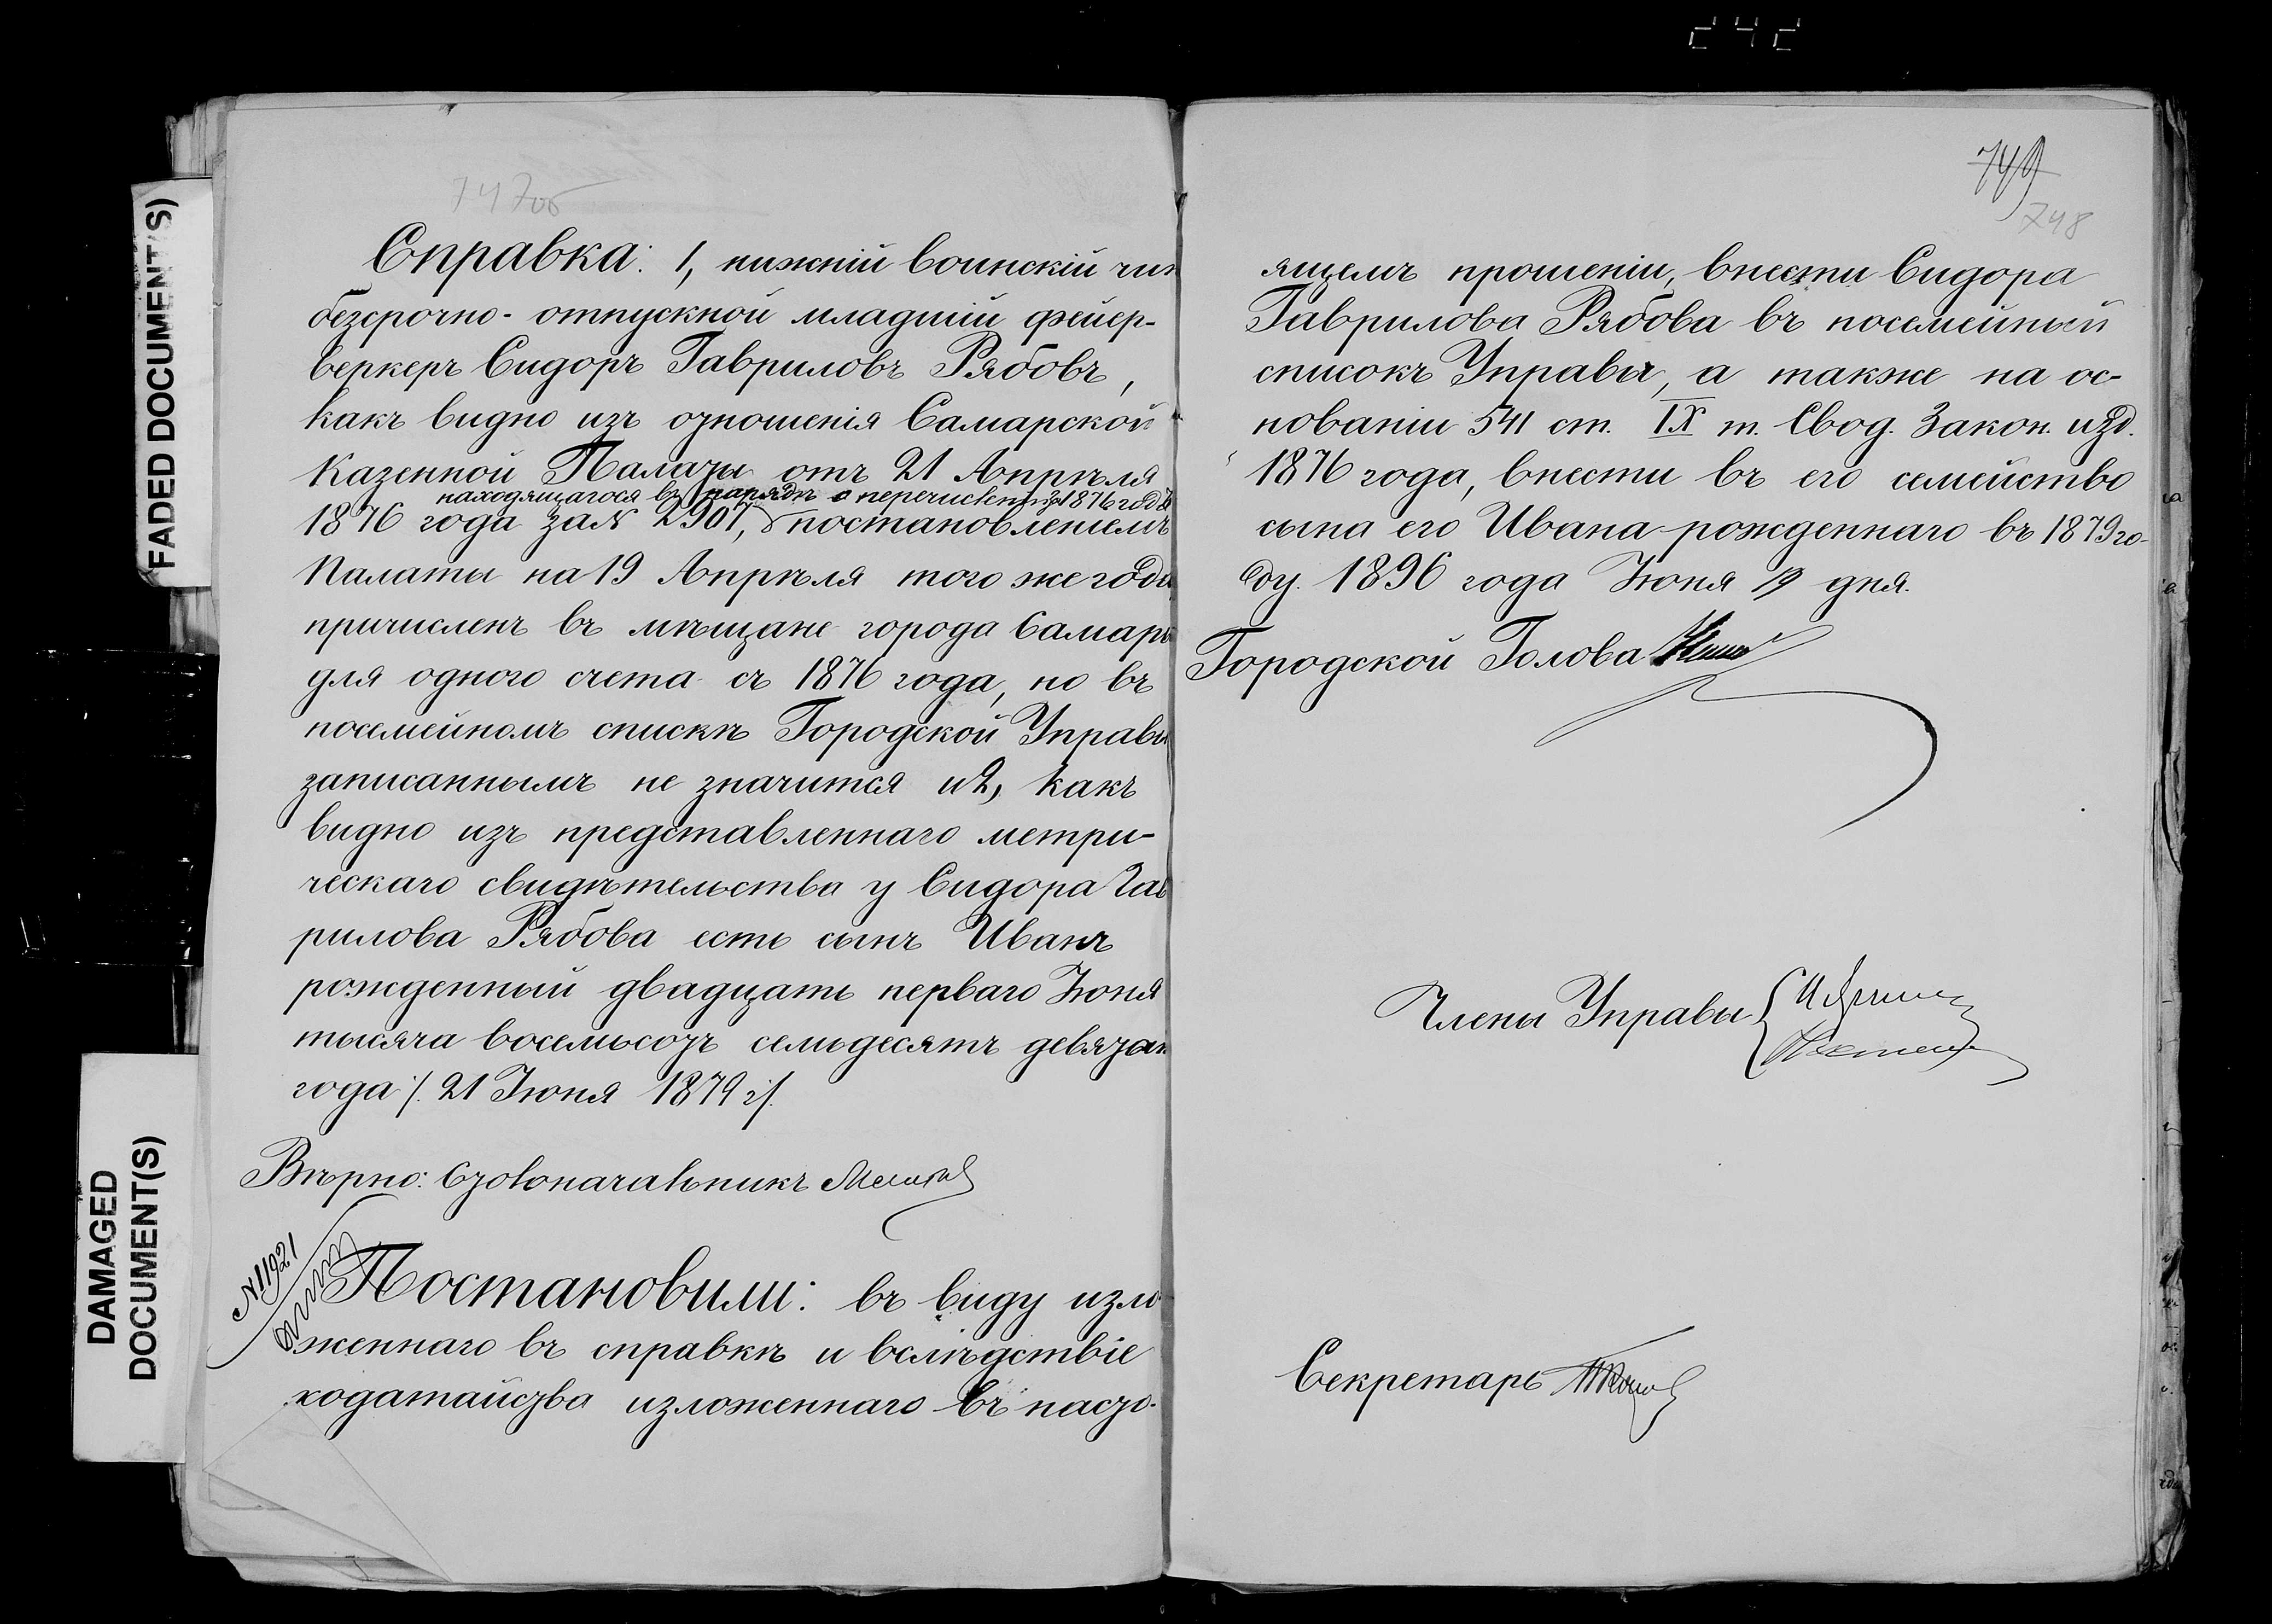 747об
Справка: 1, нижній воинскій чин
безсрочно-отпускной младшій фейер-
веркеръ Сидоръ Гавриловъ Рябовъ,
какъ видно изъ отношенія Самарской
Казенной Палаты отъ 21 Апрѣля
находящагося въ нарядѣ о перечислен. за 1876 годъ
1876 года за № 2907, постановленіемъ
Палаты на 19 Апрѣля того же года
причисленъ въ мѣщане города Самары
для одного счета съ 1876 года, но въ
посемейномъ спискѣ Городской Управы
записаннымъ не значится и 2, какъ
видно изъ представленнаго метри-
ческаго свидѣтельства у Сидора Гав
рилова Рябова есть сынъ Иванъ
рожденный двадцать перваго Іюня
тысяча восемьсотъ семьдесятъ девятаго
года /. 21 Іюня 1879 г/.
Вѣрно: Столоначальникъ
№ 11921
Постановили: въ виду изло
женнаго въ справкѣ и вслѣдствіе
ходатайства изложеннаго въ насто-
749
748
ящемъ прошеніи, внести Сидора
Гаврилова Рябова въ посемейный
списокъ Управы, а также на ос-
нованіи 541 ст. IX т. Свод. Закон. изд.
1876 года, внести въ его семейство
сына его Ивана рожденнаго въ 1879 го-
ду. 1896 года Іюня 19 дня.
Городской Голова
Члены Управы
Секретарь
FADED DOCUMENT(S)
DAMAGED
DOCUMENT(S)